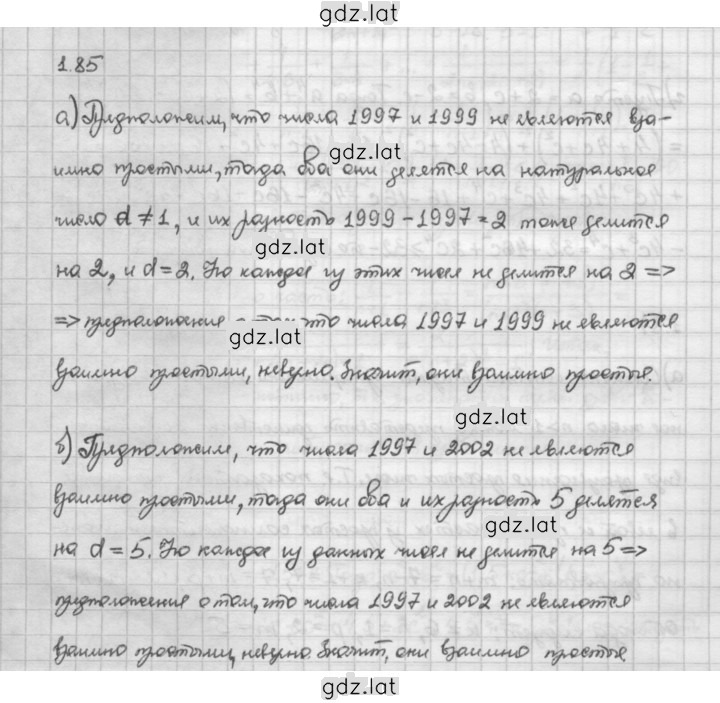 gdz.lat
1.85
а) Предположим, что числа 1997 и 1999 не являются вза-
gdz.lat
имно простыми, тогда оба они делятся на натуральное
число d ≠ 1, и их разность 1999 - 1997 = 2 тоже делится
gdz.lat
на 2, и d = 2. Но каждое из этих чисел не делится на 2 =>
=> предположение что числа 1997 и 1999 не являются
gdz.lat
взаимно простыми, неверно. Значит, они взаимно простые.
gdz.lat
б) Предположим, что числа 1997 и 2002 не являются
взаимно простыми, тогда они оба и их разность 5 делятся
gdz.lat
на d = 5. Но каждое из данных чисел не делится на 5 =>
предположения о том, что числа 1997 и 2002 не являются
взаимно простыми, неверно. Значит, они взаимно простые
gdz.lat